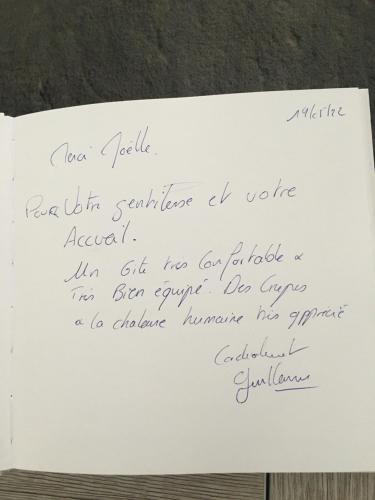 19/05/22
Merci Joëlle.
Pour Votre gentillesse et votre
Accueil.
Un Gite très Confortable &
Très Bien équipé. Des Crepes
à la chaleur humaine très apprécié
Cordialement
Guillaume